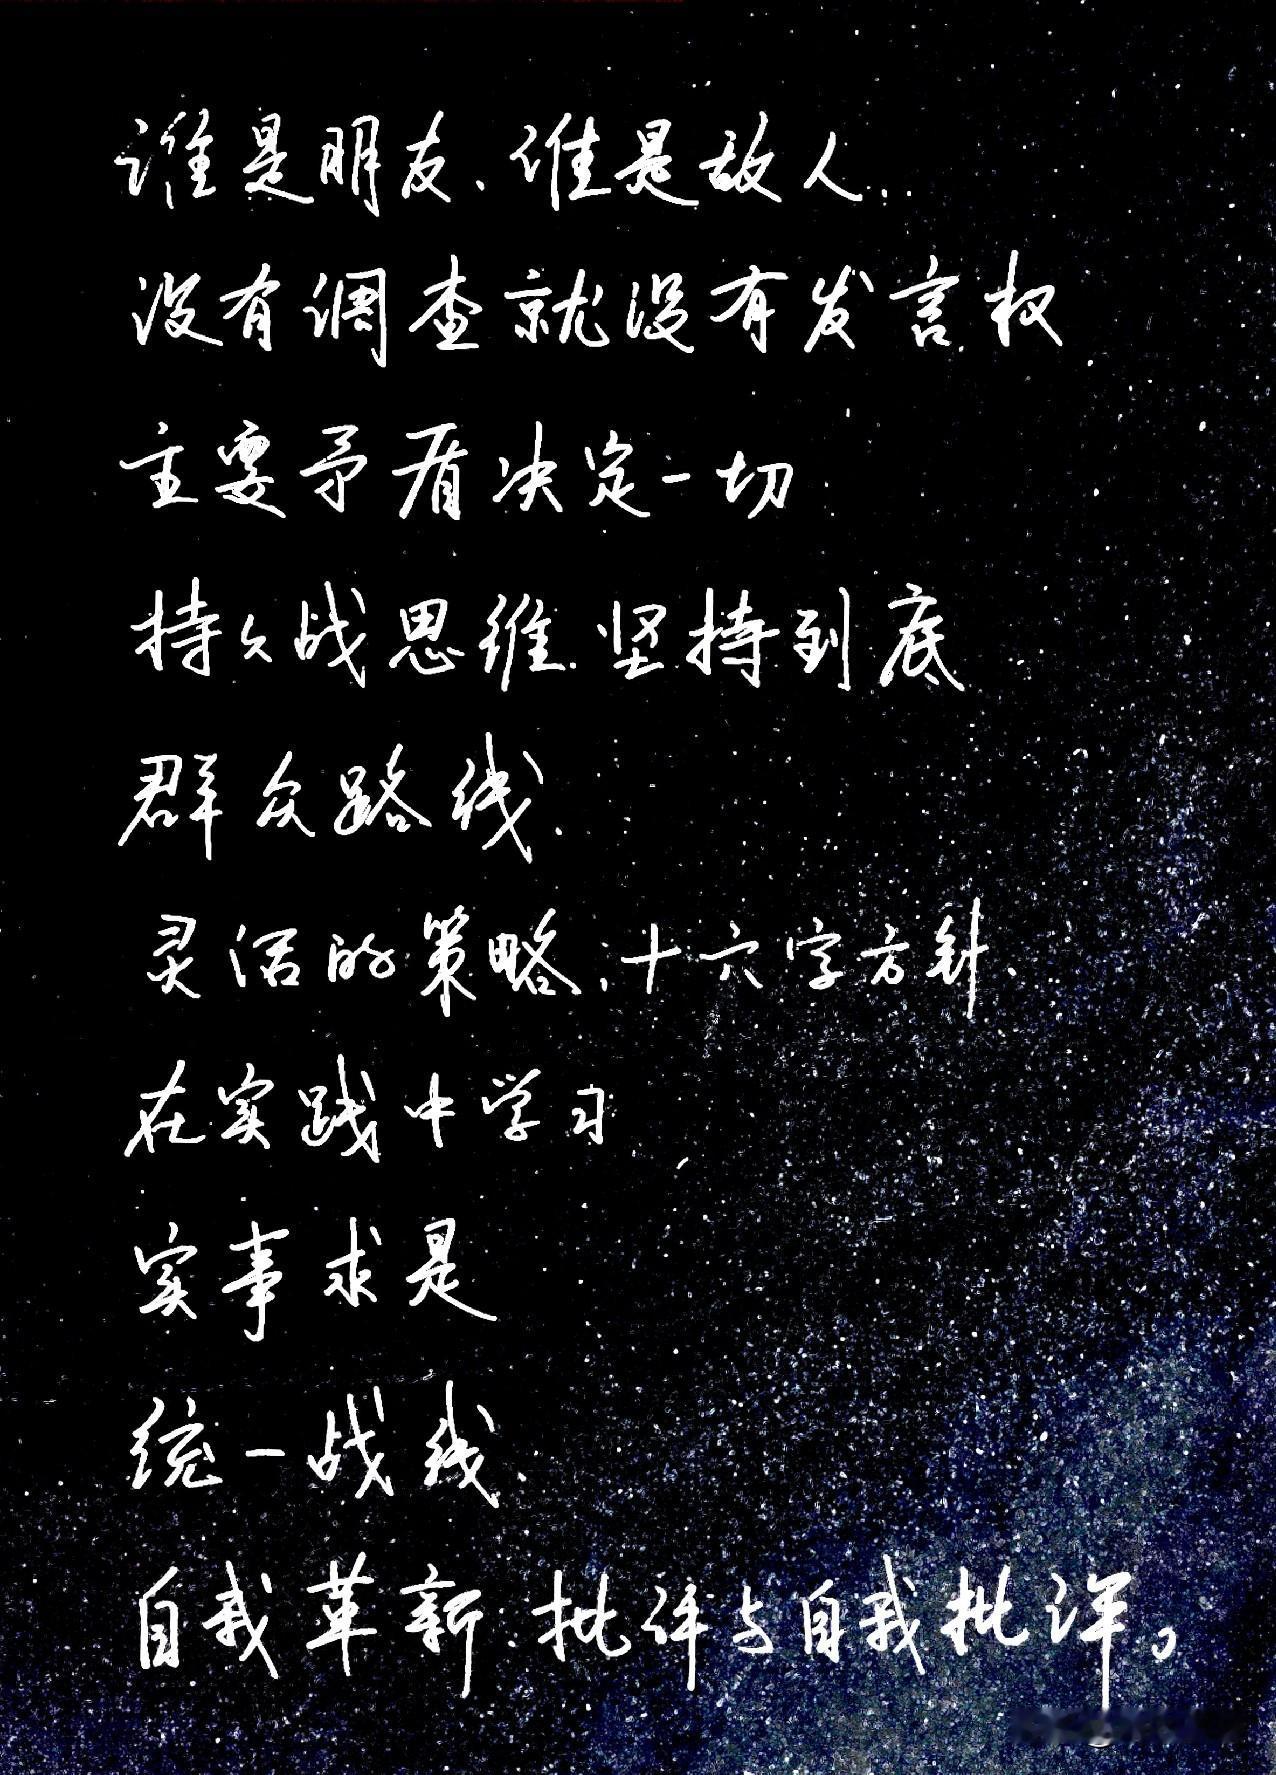 谁是朋友、谁是敌人.
没有调查就没有发言权
主要矛盾决定一切
持久战思维.坚持到底
群众路线.
灵活的策略、十六字方针、
在实践中学习
实事求是
统一战线.
自我革新.批评与自我批评。